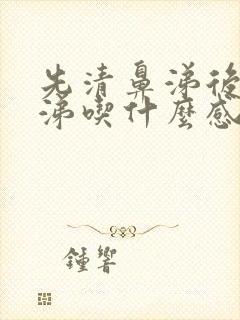 先清鼻涕後
涕喫什麼感
鍾響